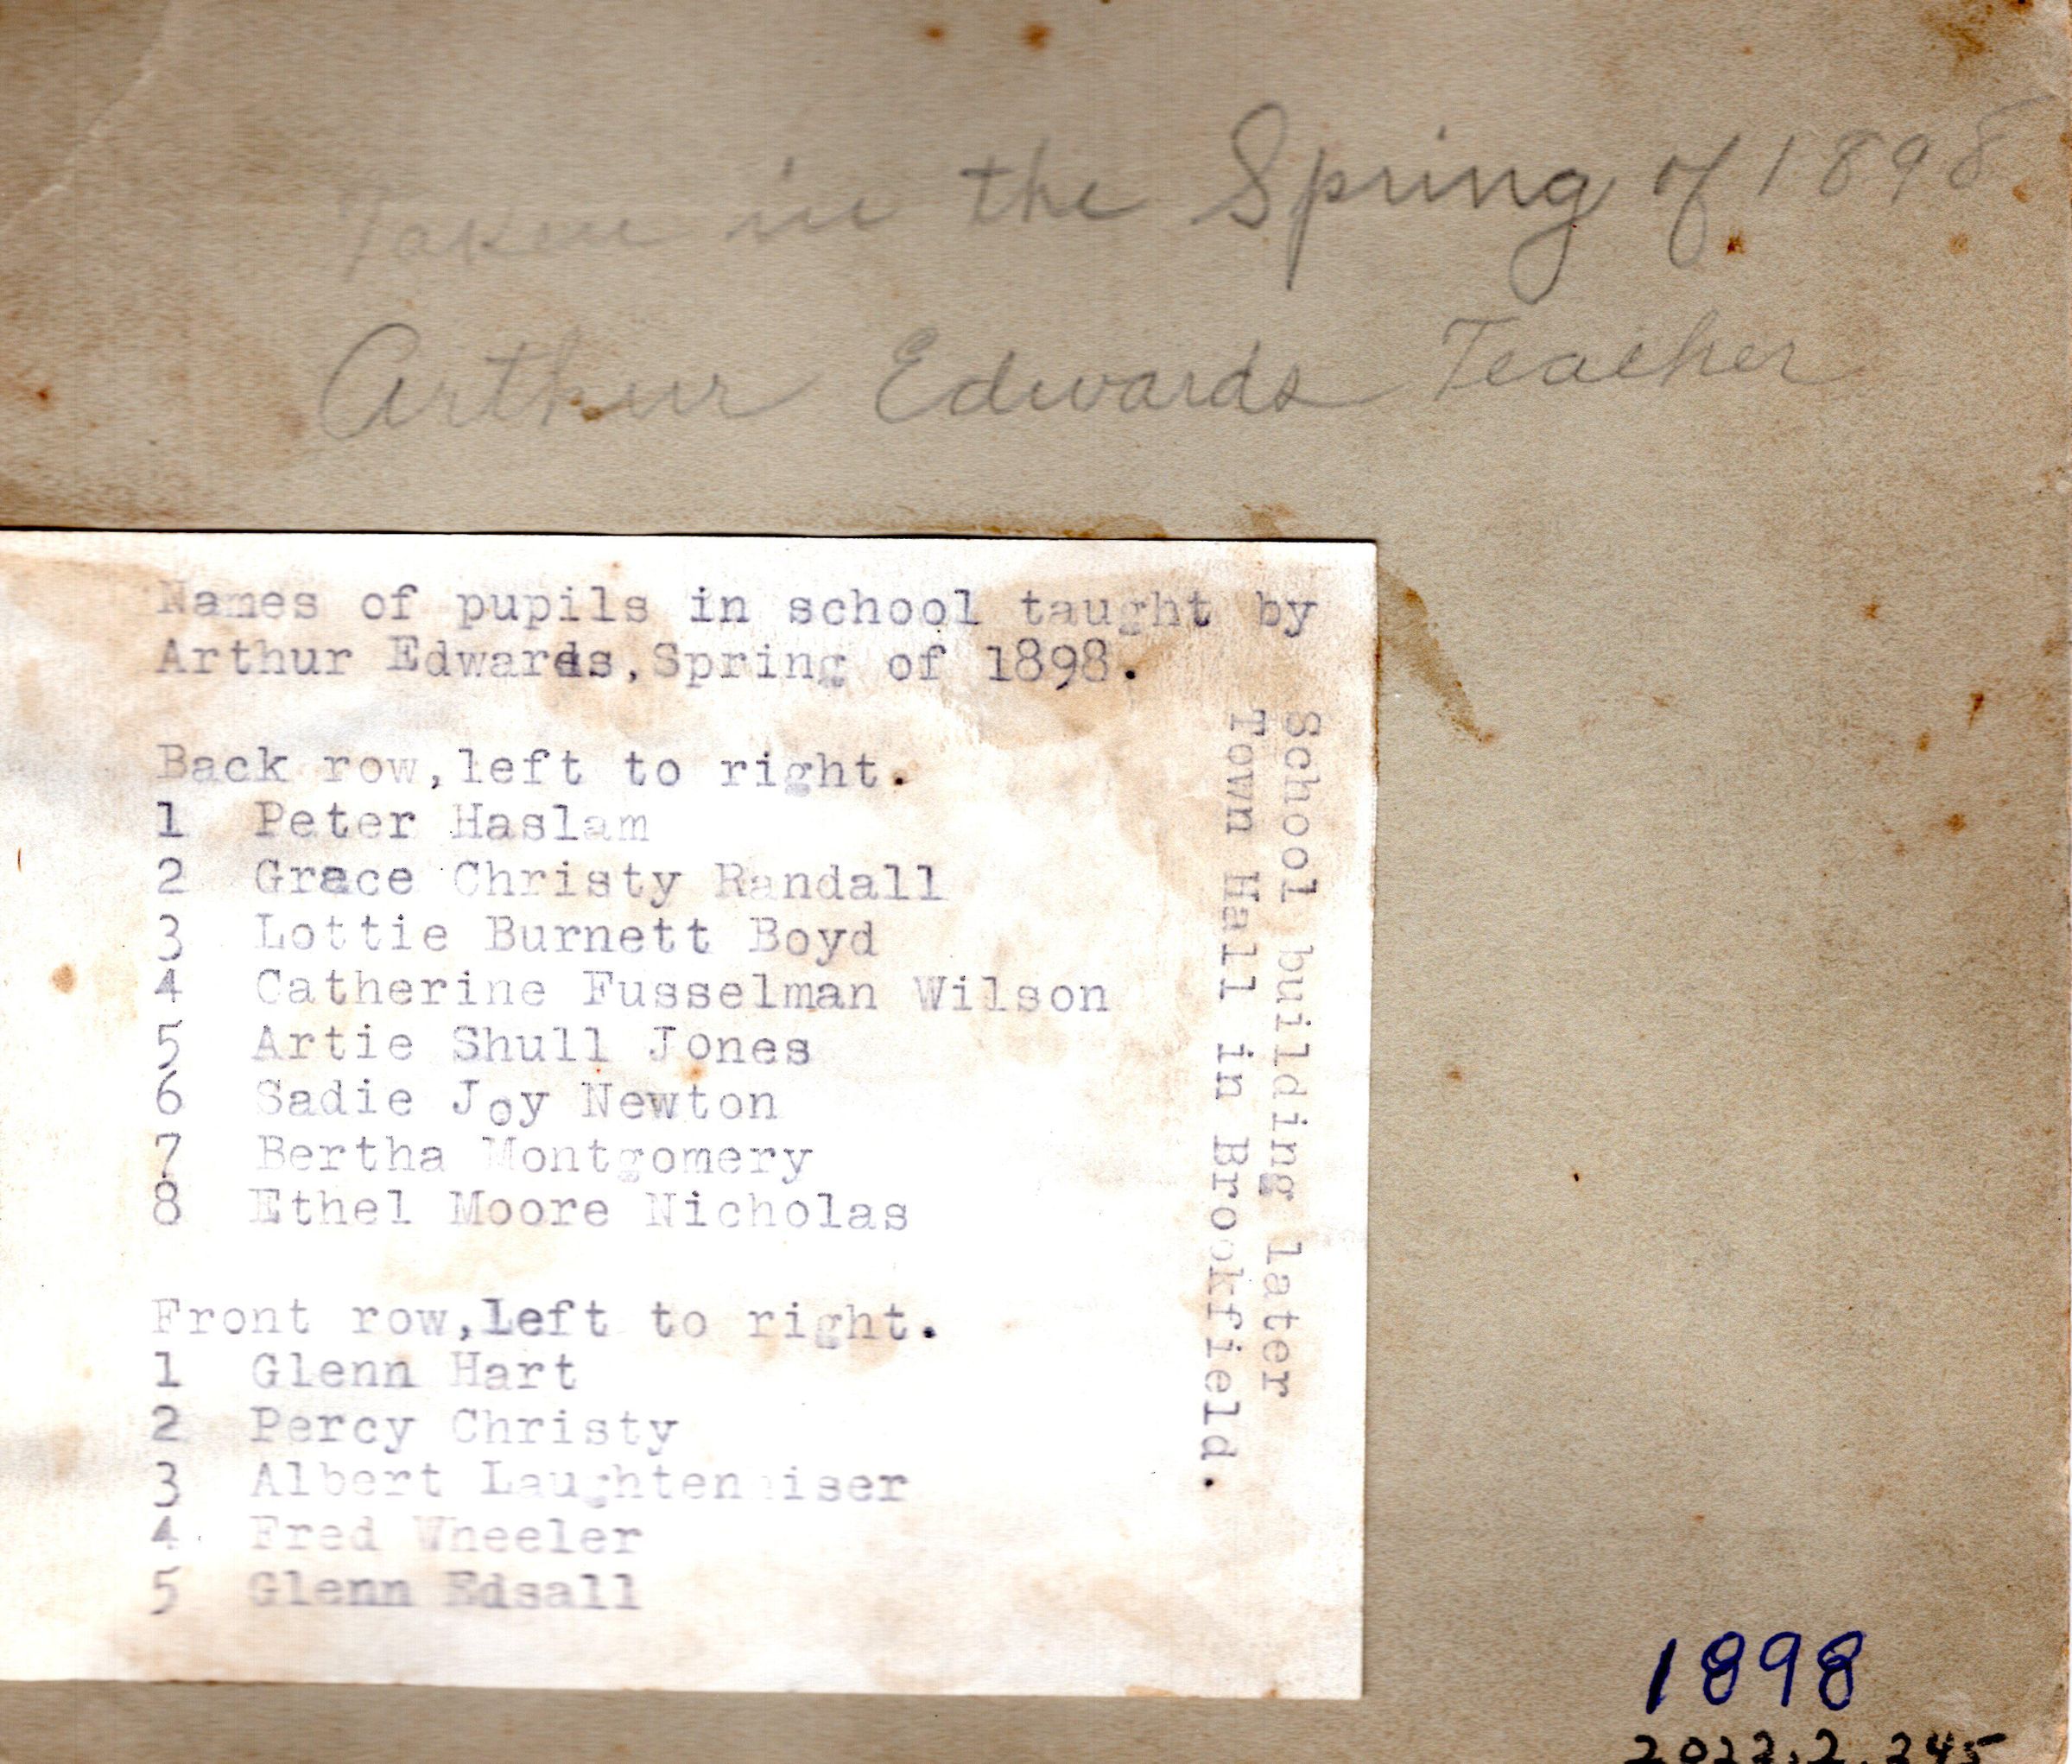 Taken in the Spring of 1898
Arthur Edwards Teacher
Names of pupils in school taught by
Arthur Edwards,Spring of 1898.
Back row,left to right.
1 Peter Haslam
2 Grace Christy Randall
3 Lottie Burnett Boyd
4 Catherine Fusselman Wilson
5 Artie Shull Jones
6 Sadie Joy Newton
7 Bertha Montgomery
8 Ethel Moore Nicholas
Front row,left to right.
1 Glenn Hart
2 Percy Christy
3 Albert
4 Fred Wheeler
5 Glenn Edsall
School building later
Town Hall in Brookfield.
1898
2022.2.245